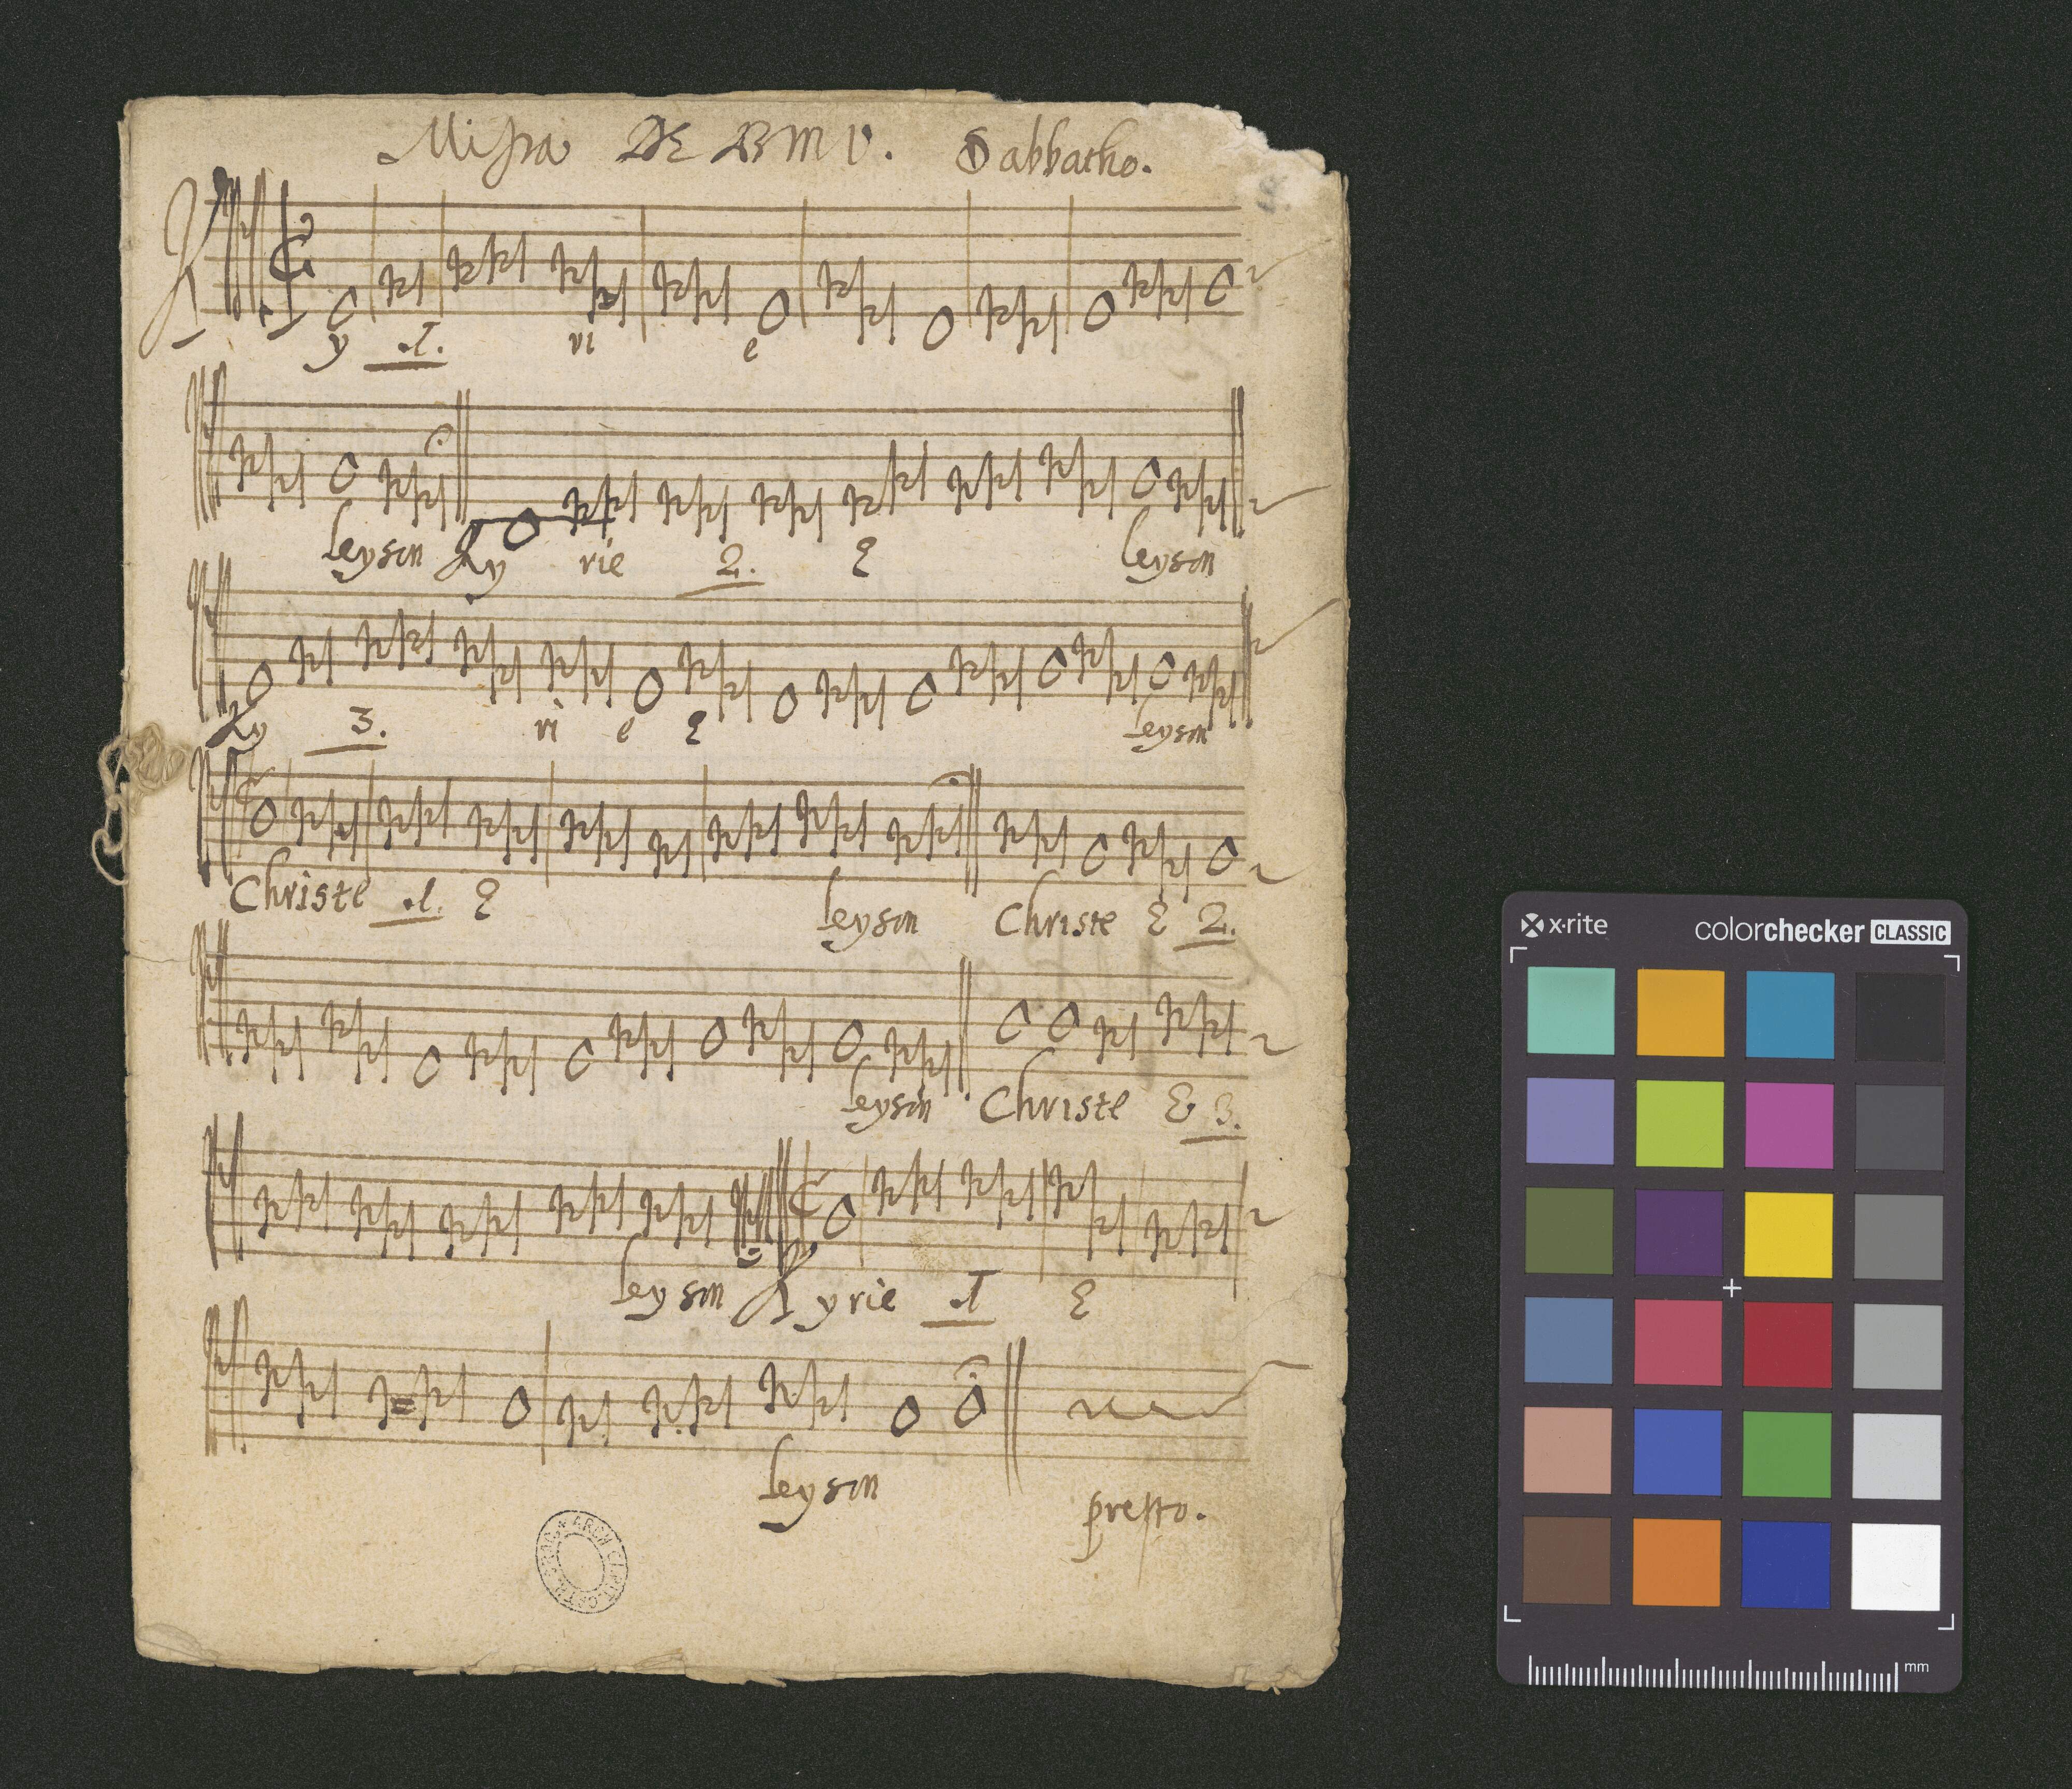 Missa DE B M V. Sabbatho.
8.
Ky .1. ri e
leyson Ky rie 2. E leyson
Ky 3. ri e E leyson
Christe .1. E leyson Christe E 2.
leyson Christe E 3.
leyson Kyrie .1 E
leyson
presto.
x·rite colorchecker CLASSIC
mm